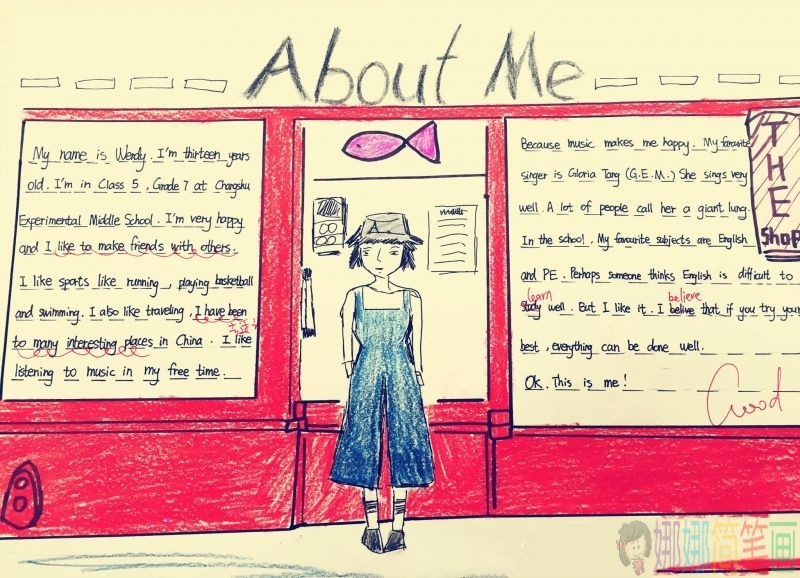 About Me
My name is Wendy. I'm thirteen years
old. I'm in Class 5, Grade 7 at Changshu
Experimental Middle School. I'm very happy
and I like to make friends with others.
I like sports like running, playing basketball
and swimming. I also like traveling, I have been
to many interesting places in China. I like
listening to music in my free time.
Because music makes me happy. My favourite
singer is Gloria Tang (G.E.M.) She sings very
well. A lot of people call her a giant lung.
In the school, My favourite subjects are English
and PE. Perhaps someone thinks English is difficult to
learn believe
study well. But I like it. I belive that if you try your
best, everything can be done well.
Ok. This is me!
Good
THE
Shop
娜娜简笔画